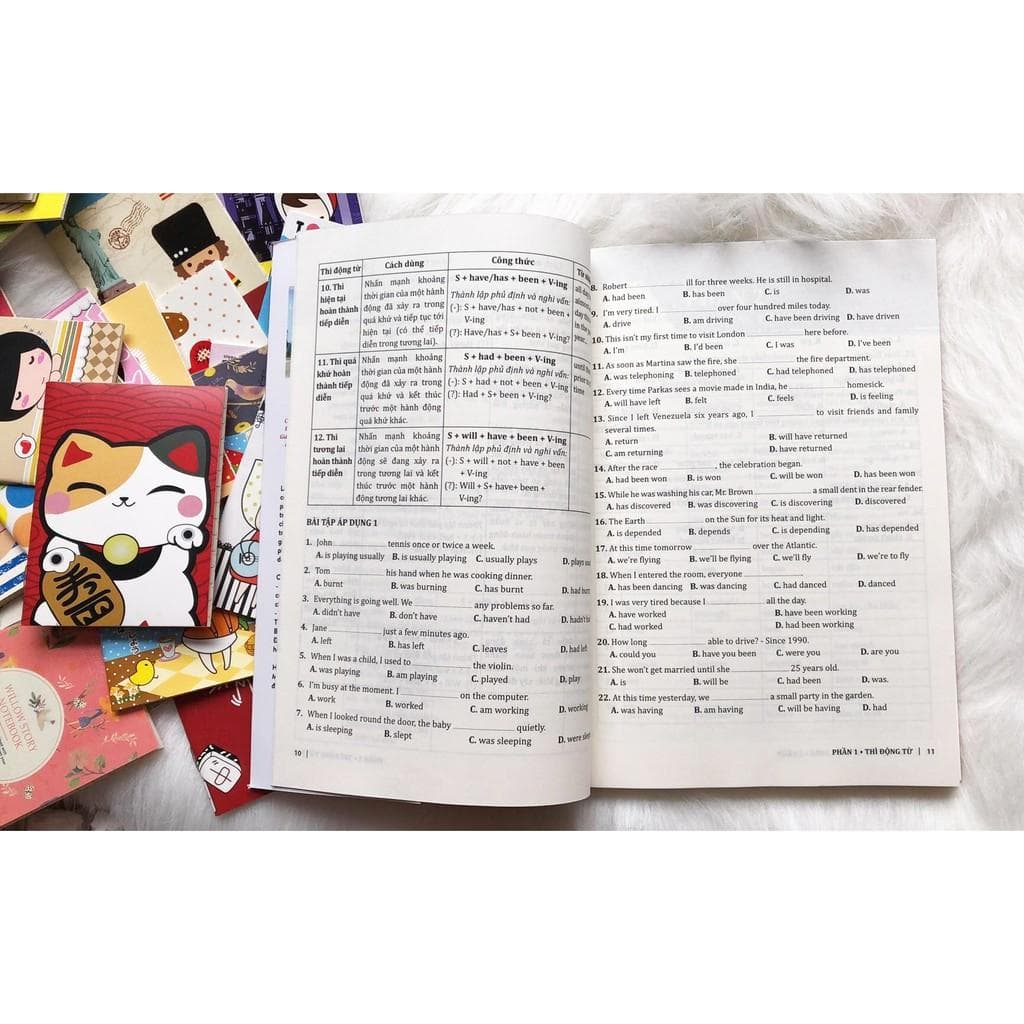 Thì động từ
Cách dùng
Công thức
10. Thì
hiện tại
hoàn thành
tiếp diễn
Nhấn mạnh khoảng
thời gian của một hành
động đã xảy ra trong
quá khứ và tiếp tục tới
hiện tại (có thể tiếp
diễn trong tương lai).
S + have/has + been + V-ing
Thành lập phủ định và nghi vấn:
(-): S + have/has + not + been +
V-ing
(?): Have/has + S+ been + V-ing?
11. Thì quá
khứ hoàn
thành tiếp
diễn
Nhấn mạnh khoảng
thời gian của một hành
động đã xảy ra trong
quá khứ và kết thúc
trước một hành động
quá khứ khác.
S + had + been + V-ing
Thành lập phủ định và nghi vấn:
(-): S + had + not + been + V-ing
(?): Had + S+ been + V-ing?
12. Thì
tương lai
hoàn thành
tiếp diễn
Nhấn mạnh khoảng
thời gian của một hành
động sẽ đang xảy ra
trong tương lai và kết
thúc trước một hành
động tương lai khác.
S + will + have + been + V-ing
Thành lập phủ định và nghi vấn:
(-): S + will + not + have + been
+ V-ing
(?): Will + S+ have+ been +
V-ing?
BÀI TẬP ÁP DỤNG 1
1. John __________ tennis once or twice a week.
A. is playing usually B. is usually playing C. usually plays D. plays
2. Tom __________ his hand when he was cooking dinner.
A. burnt B. was burning C. has burnt D. had
3. Everything is going well. We __________ any problems so far.
A. didn't have B. don't have C. haven't had D.
4. Jane __________ just a few minutes ago.
A. left B. has left C. leaves D. had left
5. When I was a child, I used to __________ the violin.
A. was playing B. am playing C. played D. play
6. I'm busy at the moment. I __________ on the computer.
A. work B. worked C. am working D. working
7. When I looked round the door, the baby __________ quietly.
A. is sleeping B. slept C. was sleeping D. were
10
8. Robert __________ ill for three weeks. He is still in hospital.
A. had been B. has been C. is D. was
9. I'm very tired. I __________ over four hundred miles today.
A. drive B. am driving C. have been driving D. have driven
10. This isn't my first time to visit London __________ here before.
A. I'm B. I'd been C. I was D. I've been
11. As soon as Martina saw the fire, she __________ the fire department.
A. was telephoning B. telephoned C. had telephoned D. has telephoned
12. Every time Parkas sees a movie made in India, he __________ homesick.
A. will have left B. felt C. feels D. is feeling
13. Since I left Venezuela six years ago, I __________ to visit friends and family
several times.
A. return B. will have returned
C. am returning D. have returned
14. After the race __________, the celebration began.
A. had been won B. is won C. will be won D. has been won
15. While he was washing his car, Mr. Brown __________ a small dent in the rear fender.
A. has discovered B. was discovering C. is discovering D. discovered
16. The Earth __________ on the Sun for its heat and light.
A. is depended B. depends C. is depending D. has depended
17. At this time tomorrow __________ over the Atlantic.
A. we're flying B. we'll be flying C. we'll fly D. we're to fly
18. When I entered the room, everyone __________.
A. has been dancing B. was dancing C. had danced D. danced
19. I was very tired because I __________ all the day.
A. have worked B. have been working
C. had worked D. had been working
20. How long __________ able to drive? - Since 1990.
A. could you B. have you been C. were you D. are you
21. She won't get married until she __________ 25 years old.
A. is B. will be C. had been D. was.
22. At this time yesterday, we __________ a small party in the garden.
A. was having B. am having C. will be having D. had
PHẦN 1 • THÌ ĐỘNG TỪ | 11
WILLOW STORY
NOTEBOOK